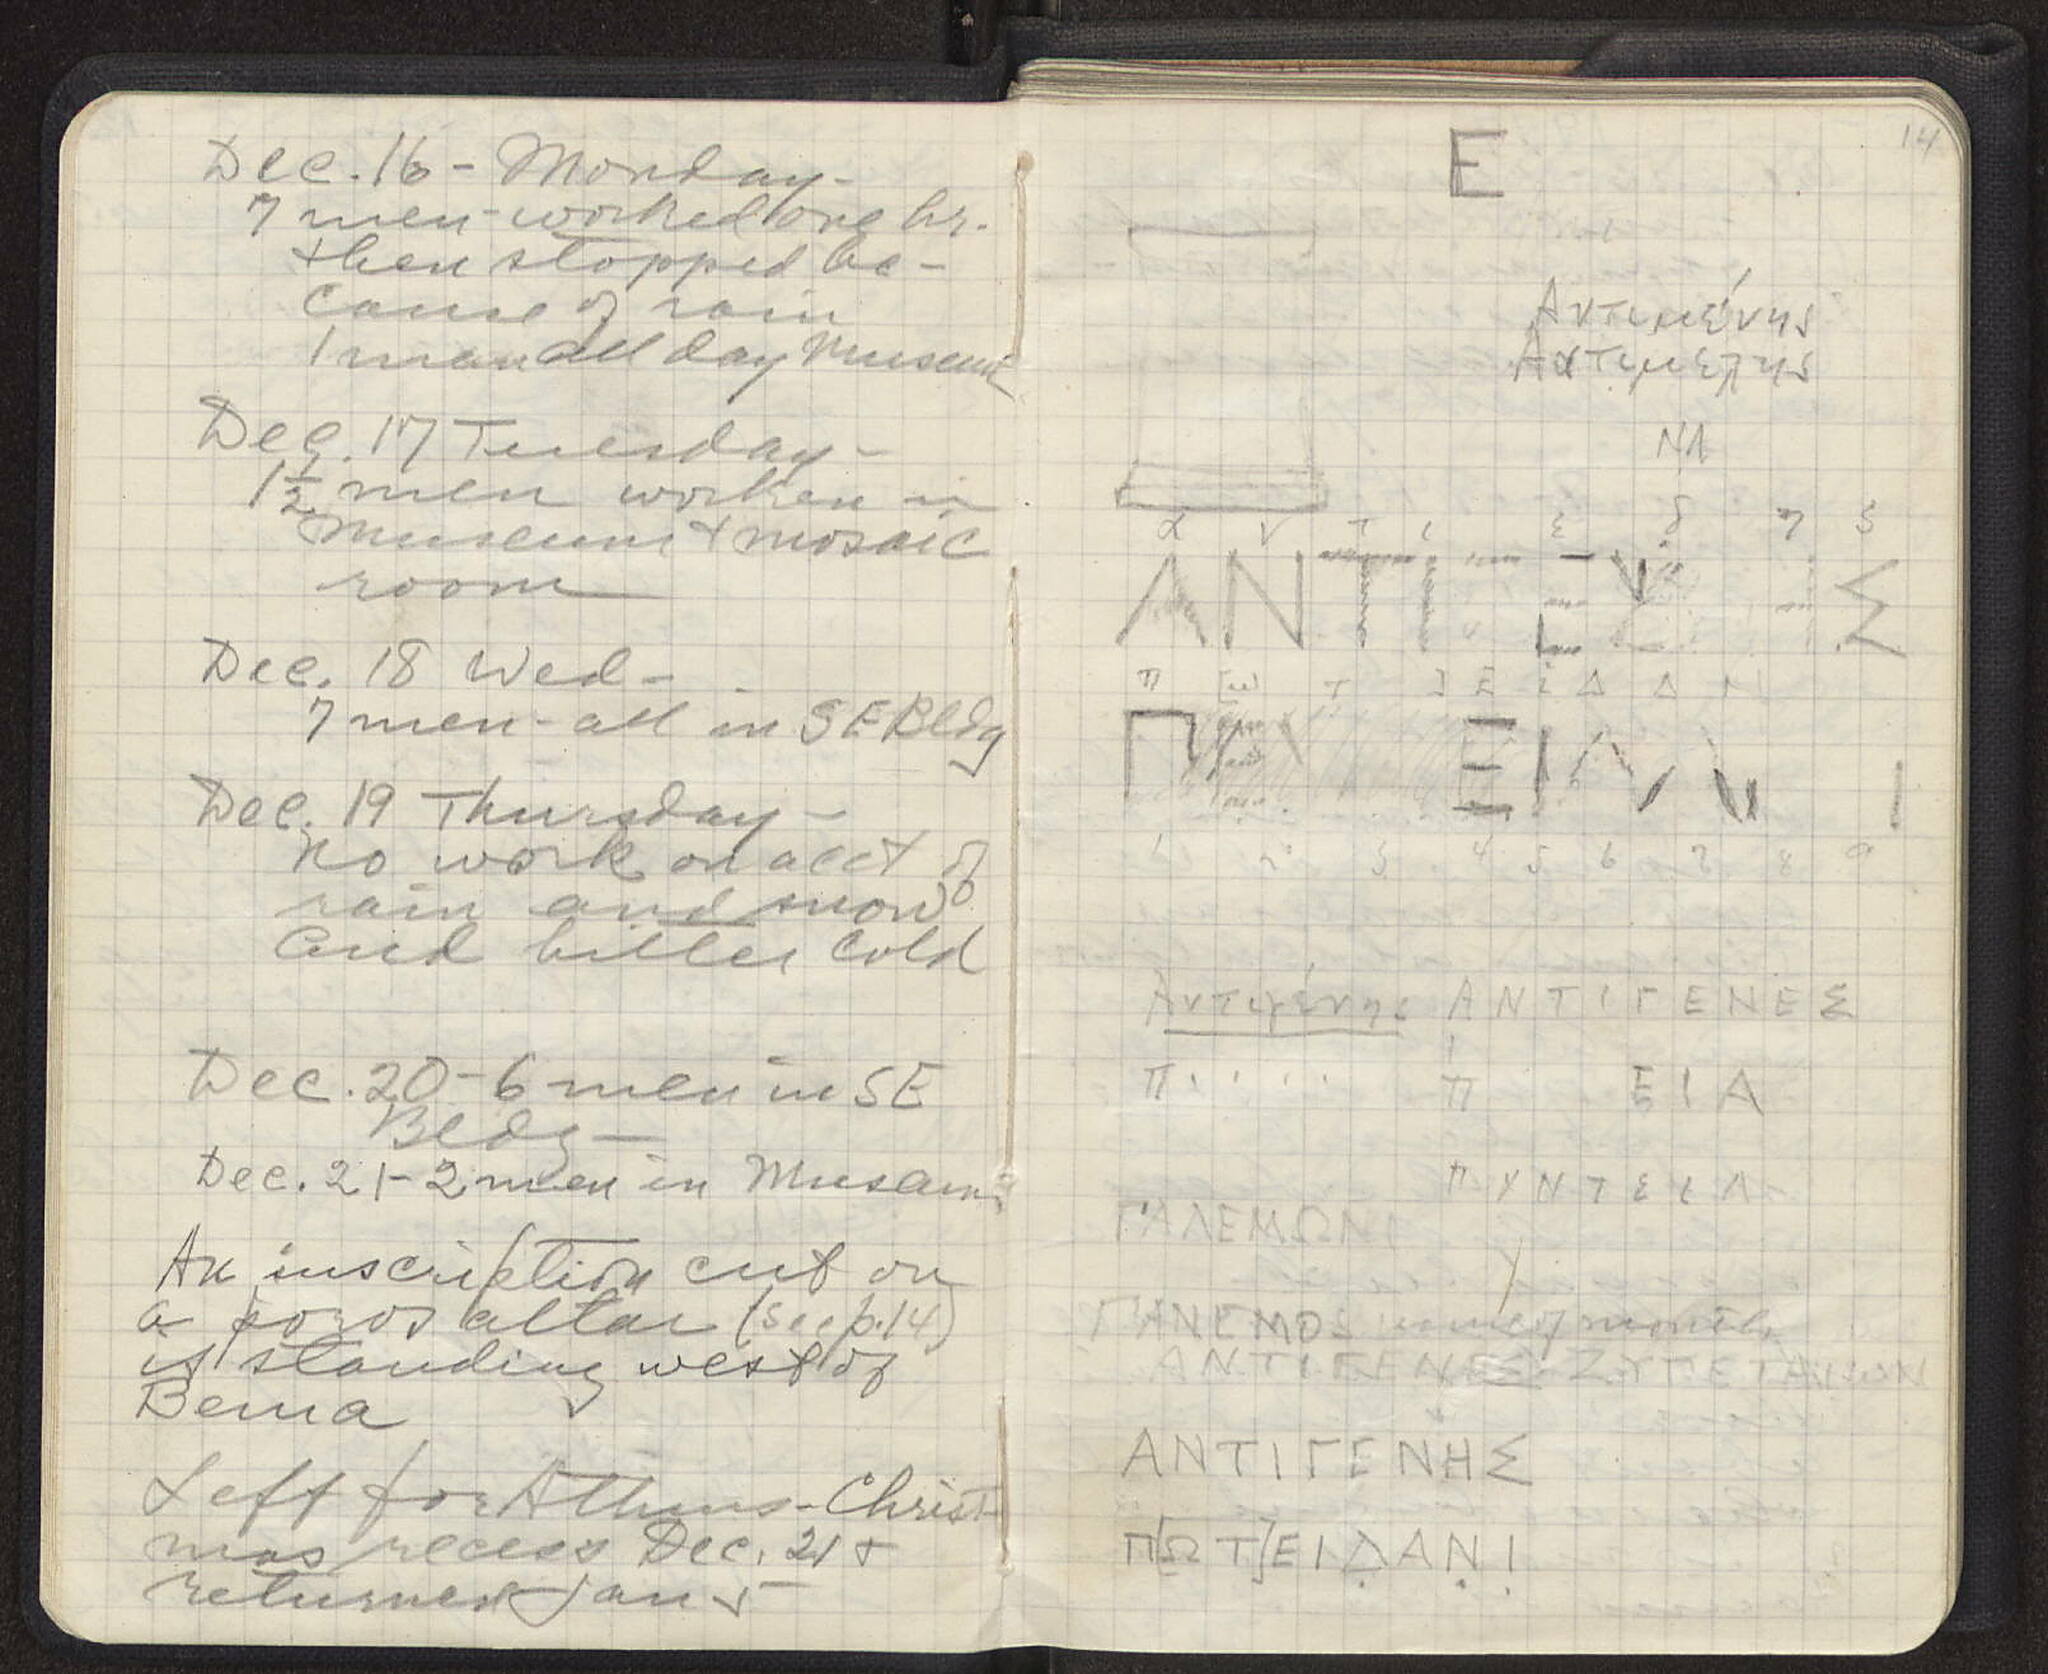 Dec. 16 - Monday -
7 men - worked one hr.
then stopped be-
cause of rain
1 man all day Museum
Dec. 17 Tuesday -
1½ men worken in
Museum & mosaic
room
Dec. 18 Wed -
7 men - all in SE Bldg
Dec. 19 Thursday -
No work on acct of
rain and snow
and bitter cold
Dec. 20 - 6 men in SE
Bldg -
Dec. 21 - 2 men in Museum
An inscription cut on
a poros altar (see p. 14)
is standing west of
Bema
Left for Athens - Christ-
mas recess Dec. 21 &
returned Jan 5
14
E
Αντιμένης
Αντιμέλης
ΝΛ
ΑΝΤΙ Σ
Π ΕΙΛ
1 2 3 4 5 6 7 8 9
Αντιγένης ΑΝΤΙΓΕΝΕΣ
Π . . . . Π ΕΙΑ
ΠΥΝΤΕΙΛ
ΓΑΛΕΜΩΝΙ
ΠΑΝΕΜΟΣ name of month
ΑΝΤΙΓΕΝΕΣ
ΑΝΤΙΓΕΝΗΣ
Π[ΩΤ]ΕΙΔΑΝΙ